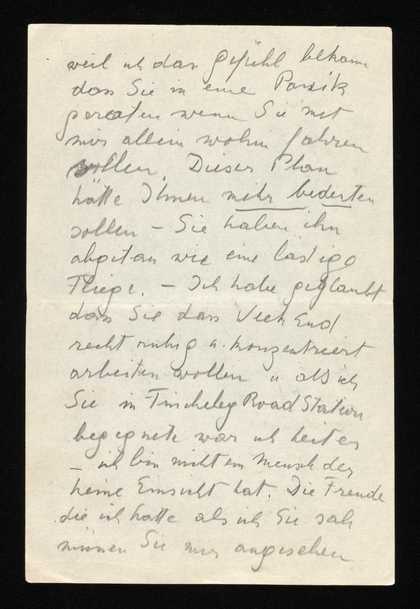 weil ich das Gefühl bekam
dass Sie in eine Panik
geraten wenn Sie mit
mir allein wohin fahren
sollen. Dieser Plan
hätte Ihnen mehr bedeuten
sollen – Sie haben ihn
abgetan wie eine lästige
Fliege. – Ich habe geglaubt
dass Sie das Week End
recht ruhig u. konzentriert
arbeiten wollen u als ich
Sie in Finchley Road Station
begegnete war ich heiter
– ich bin nicht ein Mensch der
keine Einsicht hat. Die Freude
die ich hatte als ich Sie sah
müssen Sie mir angesehen